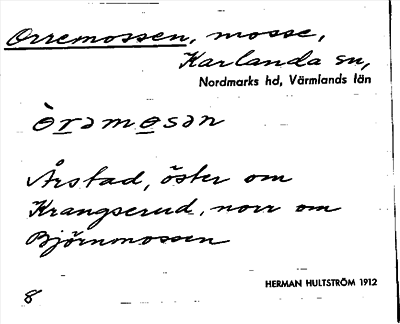 Orremossen, mosse,
Karlanda sn,
Nordmarks hd, Värmlands län
òrəmosən
Årstad, öster om
Krangserud, norr om
Björnmossen
HERMAN HULTSTRÖM 1912
8